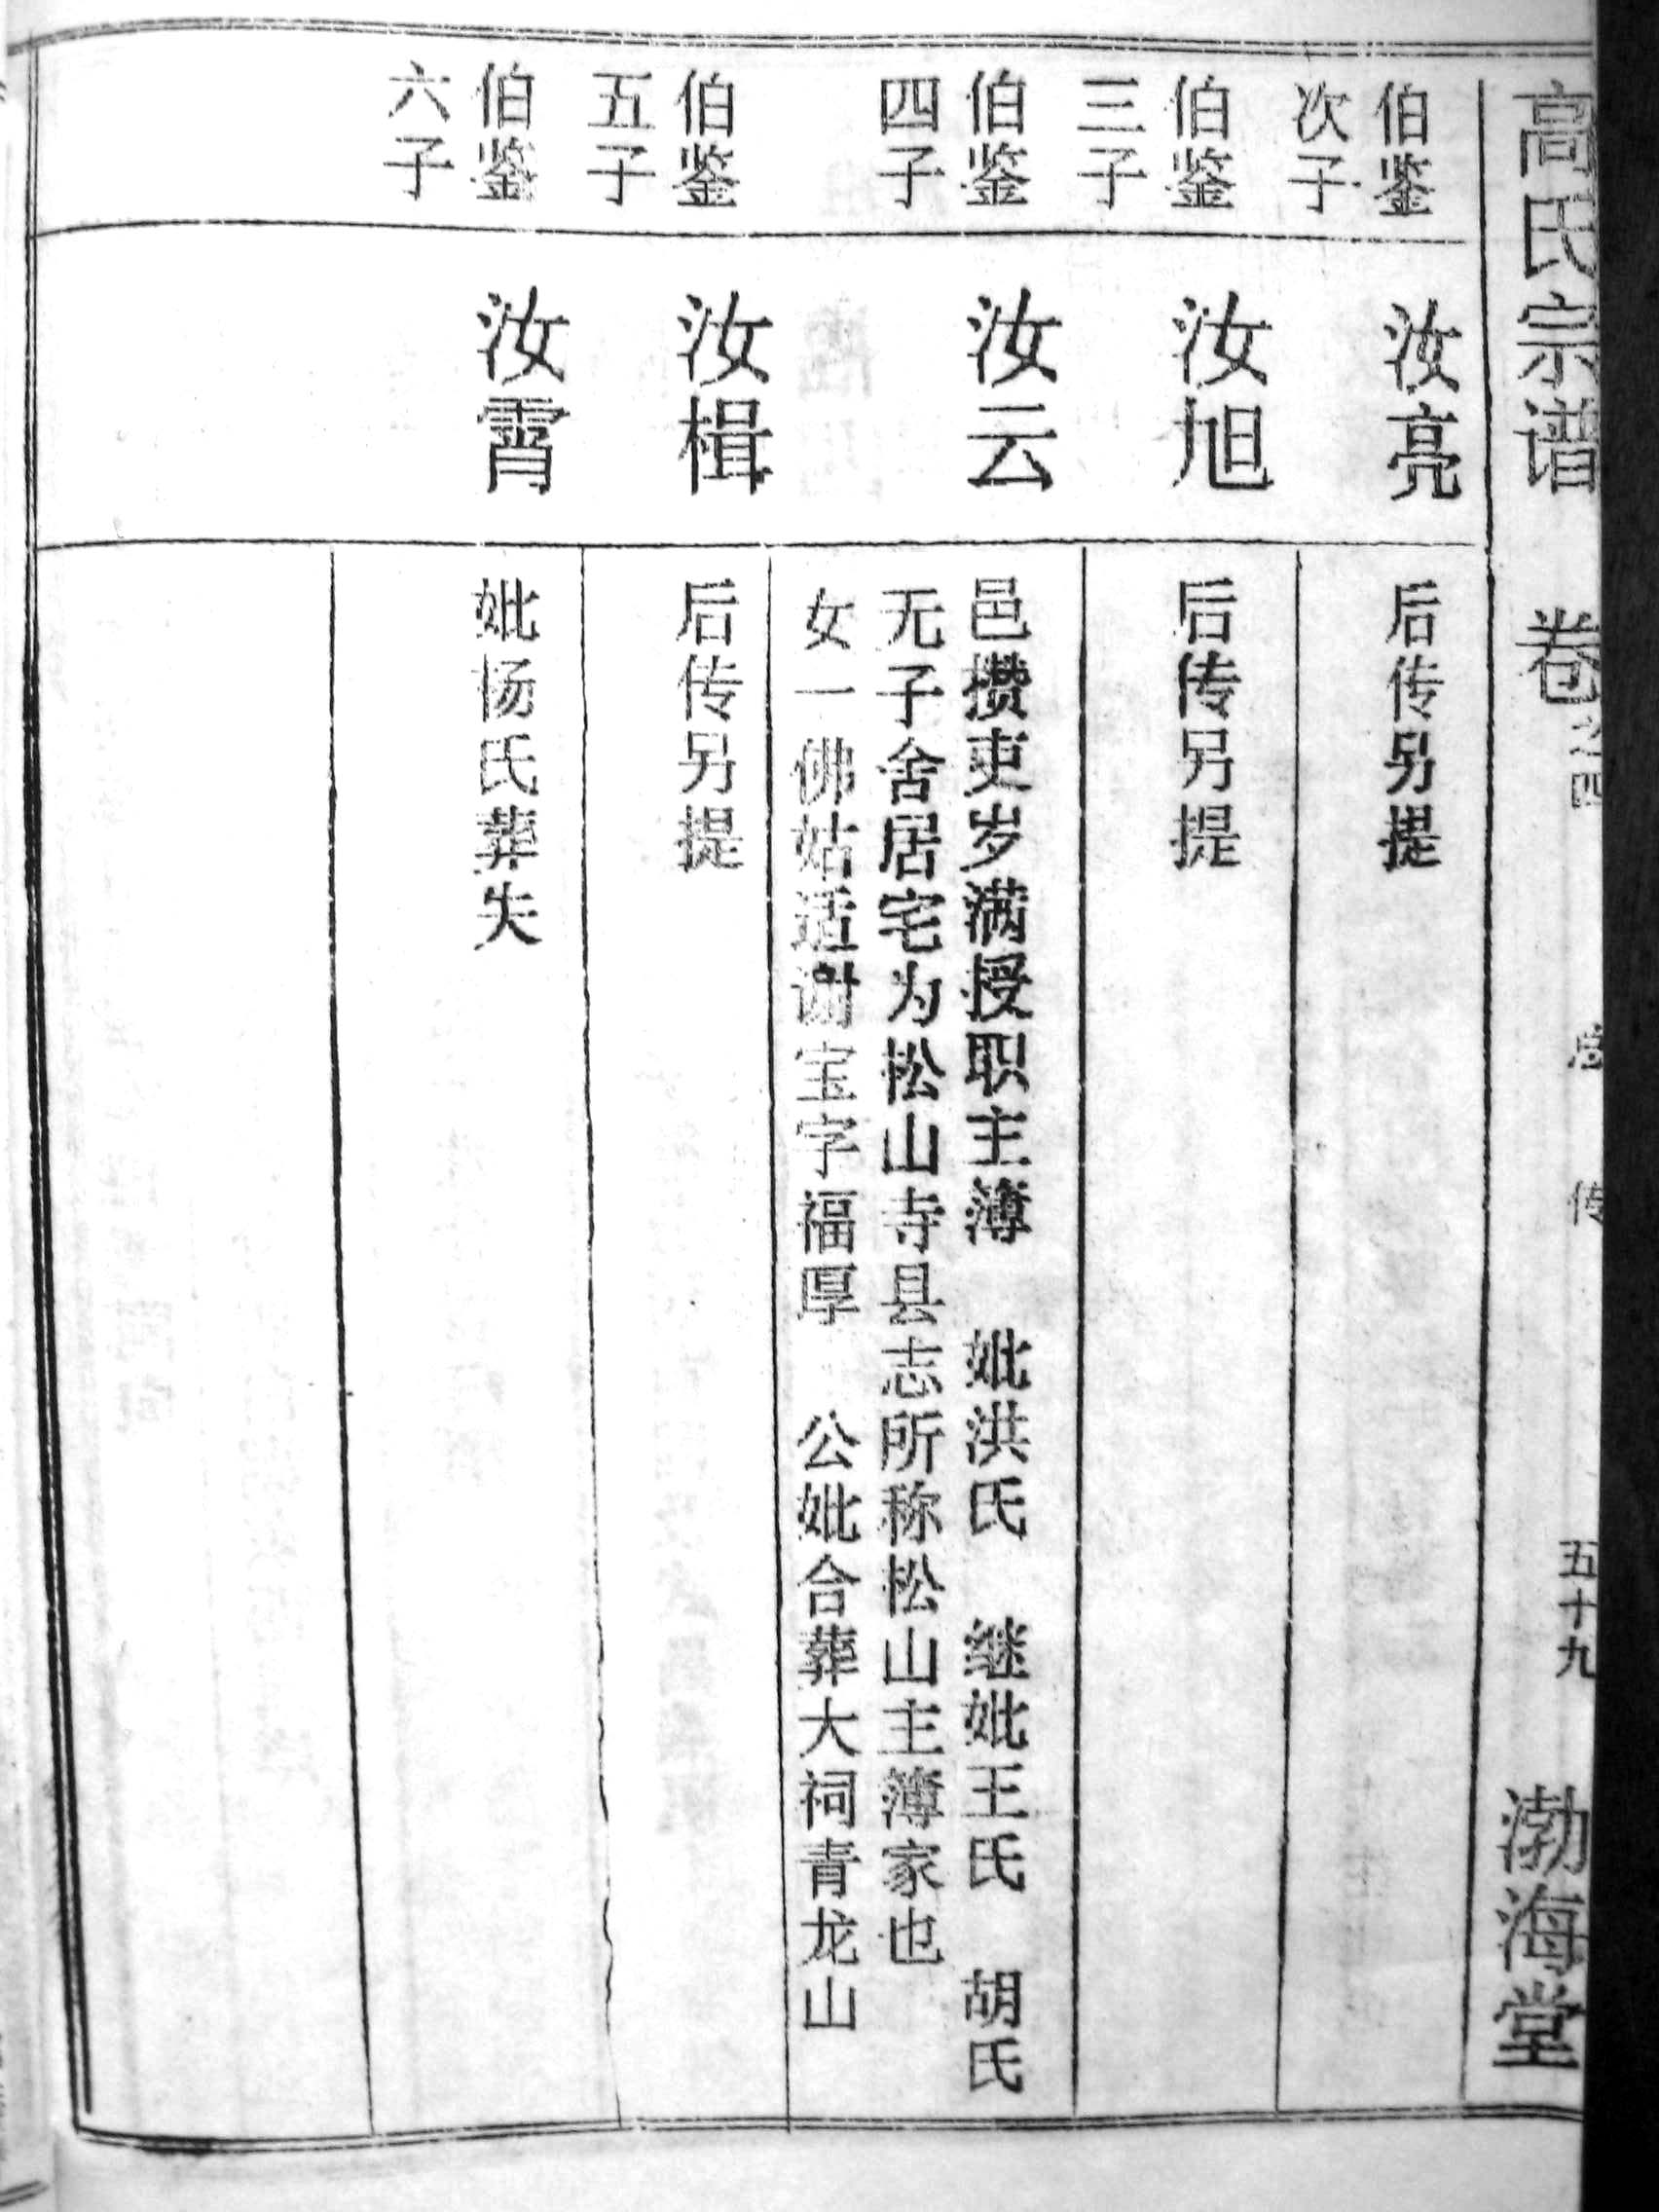 高氏宗谱 卷之四 总传 五十九 渤海堂
伯鉴
次子
汝亮
后传另提
伯鉴
三子
汝旭
后传另提
伯鉴
四子
汝云
邑攒吏岁满授职主簿 妣洪氏 继妣王氏 胡氏
无子舍居宅为松山寺县志所称松山主簿家也
女一佛姑适谢宝字福厚 公妣合葬大祠青龙山
伯鉴
五子
汝楫
后传另提
伯鉴
六子
汝霄
妣杨氏葬失